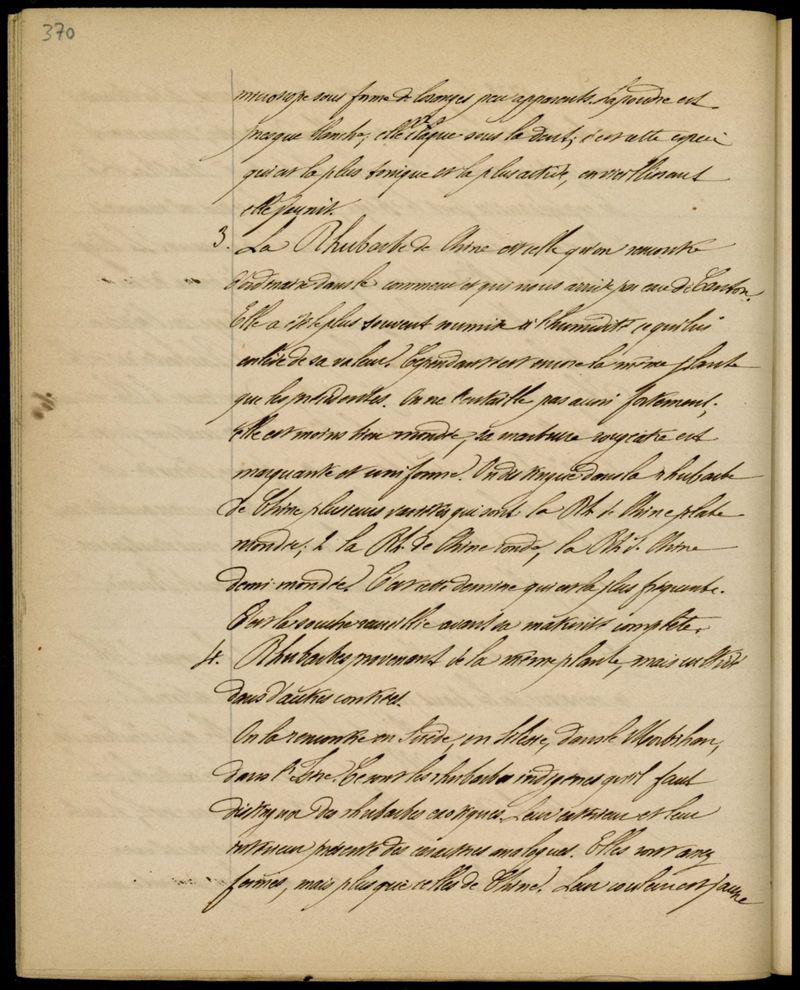 370
microscope sous forme de losanges peu apparents. La poudre est
presque blanche, elle croque sous la dent; c'est cette espèce
qui est la plus tonique et la plus active, en vieillissant
elle jaunit.
3. La Rhubarbe de Chine est celle qu'on rencontre
d'ordinaire dans le commerce et qui nous arrive par eau de Canton.
Elle a été le plus souvent soumise à l'humidité ce qui lui
enlève de sa valeur. Cependant c'est encore la même plante
que les précédentes. On ne l'entaille pas aussi fortement;
elle est moins bien mondée, sa marbrure rougeâtre est
marquante et uniforme. On distingue dans la rhubarbe
de Chine plusieurs variétés qui sont la Rh. de Chine plate
mondée; 2 la Rh. de Chine ronde, la Rh. d. Chine
demi mondée. C'est cette dernière qui est la plus fréquente.
C'est la souche cueillie avant sa maturité complète.
4. Rhubarbes provenant de la même plante, mais
dans d'autres contrées.
On la rencontre en Suède, en Silésie, dans le Morbihan,
dans l'Isère. Ce sont les rhubarbes indigènes qu'il faut
distinguer des rhubarbes exotiques. Leur extérieur et leur
intérieur présente des caractères analogues. Elles sont assez
fermes, mais plus que celles de Chine. Leur couleur est jaune